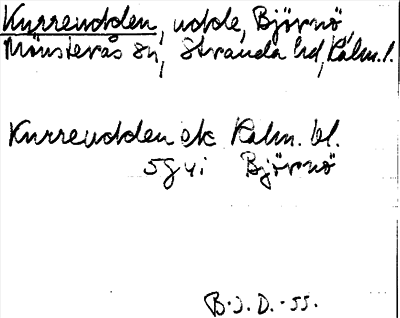 Kurreudden, udde, Björnö,
Mönsterås sn, Stranda hd, Kalm. l.
Kurreudden ek Kalm. bl.
5g 4i Björnö
B.J.D. -55.